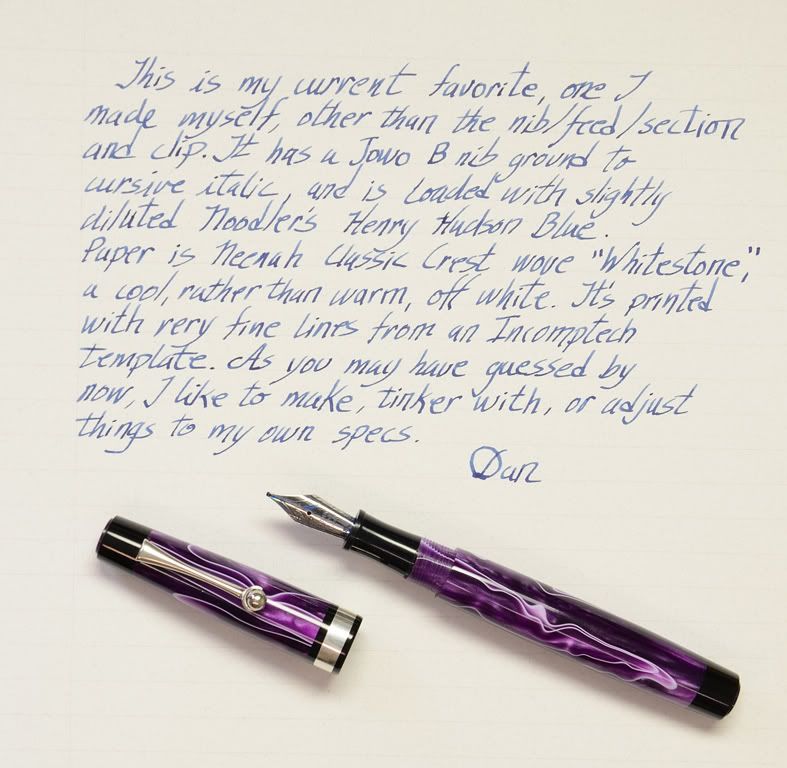 This is my current favorite, one I
made myself, other than the nib/feed/section
and clip. It has a Jowo B nib ground to
cursive italic, and is loaded with slightly
diluted Noodler's Henry Hudson Blue.
Paper is Neenah Classic Crest wove "Whitestone",
a cool, rather than warm, off white. It's printed
with very fine lines from an Incomptech
template. As you may have guessed by
now, I like to make, tinker with, or adjust
things to my own specs.
Dan